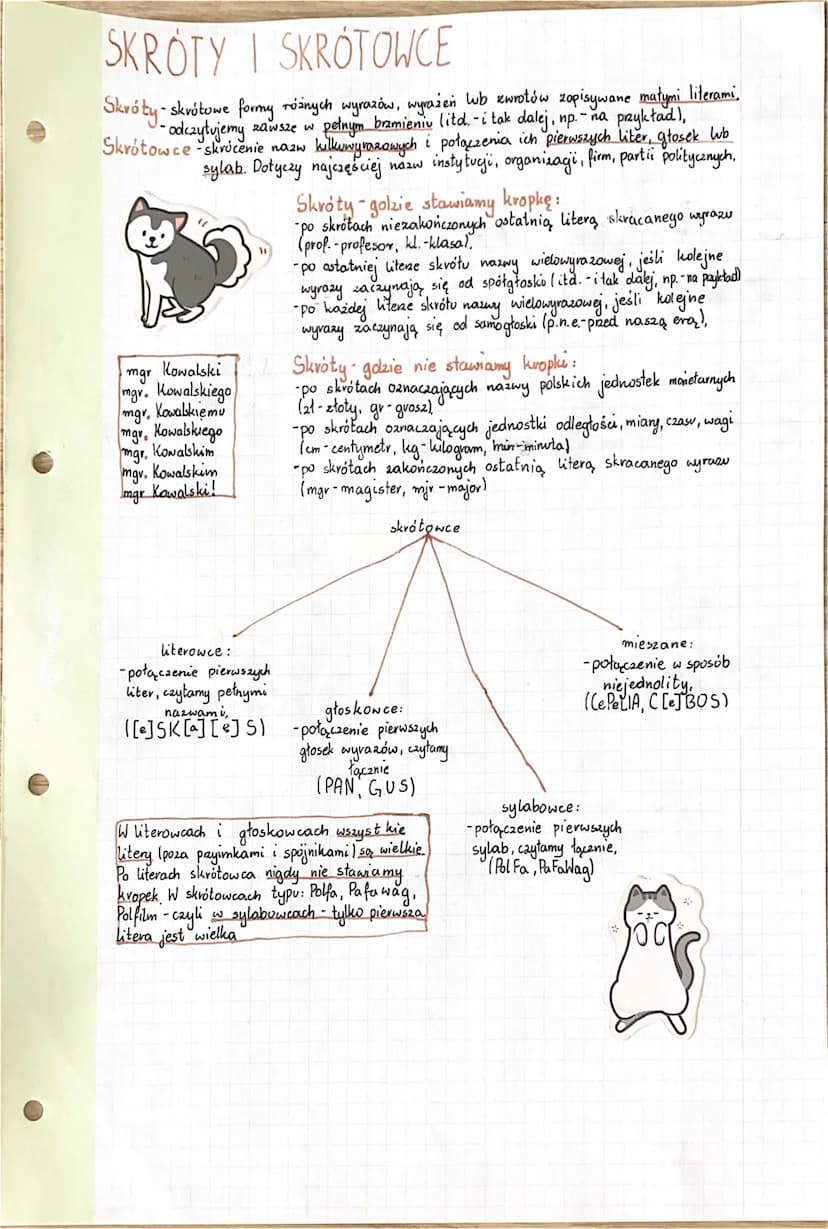 SKRÓTY I SKRÓTOWCE
Skróty - skrótowe formy różnych wyrazów, wyrażeń lub zwrotów zapisywane małymi literami.
- odczytujemy zawsze w pełnym brzmieniu (itd. - i tak dalej, np. - na przykład),
Skrótowce - skrócenie nazw kilkuwyrazowych i połączenia ich pierwszych liter, głosek lub
sylab. Dotyczy najczęściej nazw instytucji, organizacji, firm, partii politycznych,
Skróty - gdzie stawiamy kropkę:
- po skrótach niezakończonych ostatnią literą skracanego wyrazu
(prof. - profesor, kl. - klasa),
- po ostatniej literze skrótu nazwy wielowyrazowej, jeśli kolejne
wyrazy zaczynają się od spółgłoski (itd. - i tak dalej, np. - na przykład)
- po każdej literze skrótu nazwy wielowyrazowej, jeśli kolejne
wyrazy zaczynają się od samogłoski (p.n.e. - przed naszą erą),
mgr Kowalski
mgr. Kowalskiego
mgr. Kowalskiemu
mgr. Kowalskiego
mgr. Kowalskim
mgr. Kowalskim
mgr Kowalski!
Skróty - gdzie nie stawiamy kropki:
- po skrótach oznaczających nazwy polskich jednostek monetarnych
(zł - złoty, gr - grosz)
- po skrótach oznaczających jednostki odległości, miary, czasu, wagi
(cm - centymetr, kg - kilogram, min - minuta)
- po skrótach zakończonych ostatnią literą skracanego wyrazu
(mgr - magister, mjr - major)
skrótowce
literowce:
- połączenie pierwszych
liter, czytamy pełnymi
nazwami,
([e]SK[a][e]S)
głoskowce:
- połączenie pierwszych
głosek wyrazów, czytamy
łącznie
(PAN, GUS)
sylabowce:
- połączenie pierwszych
sylab, czytamy łącznie,
(PolFa, PaFaWag)
mieszane:
- połączenie w sposób
niejednolity,
(CePeLIA, C[e]BOS)
W literowcach i głoskowcach wszystkie
litery (poza przyimkami i spójnikami) są wielkie.
Po literach skrótowca nigdy nie stawiamy
kropek. W skrótowcach typu: Polfa, Pafawag,
Polfilm - czyli w sylabowcach - tylko pierwsza
litera jest wielka